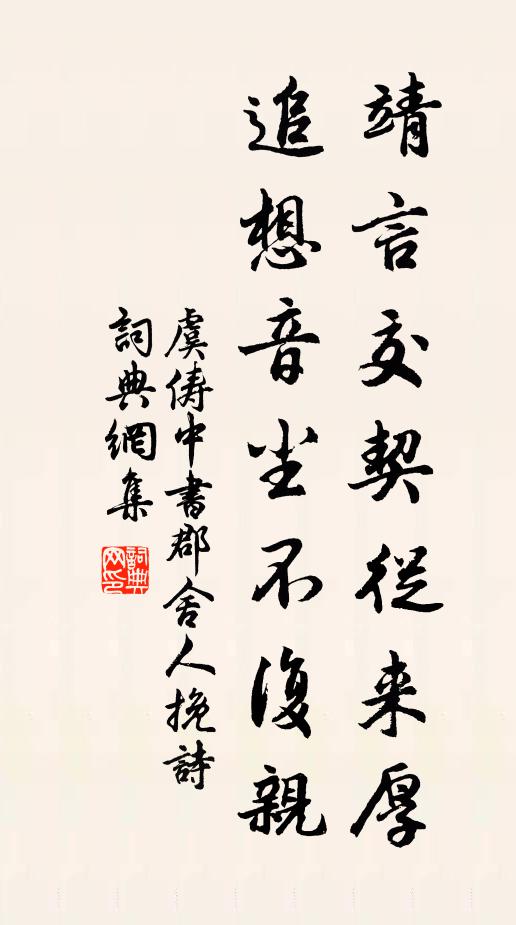 靖言交契從来厚
追想音尘不復親
虞儔中書郡舍人挽詩
詞典網集
詞典网印